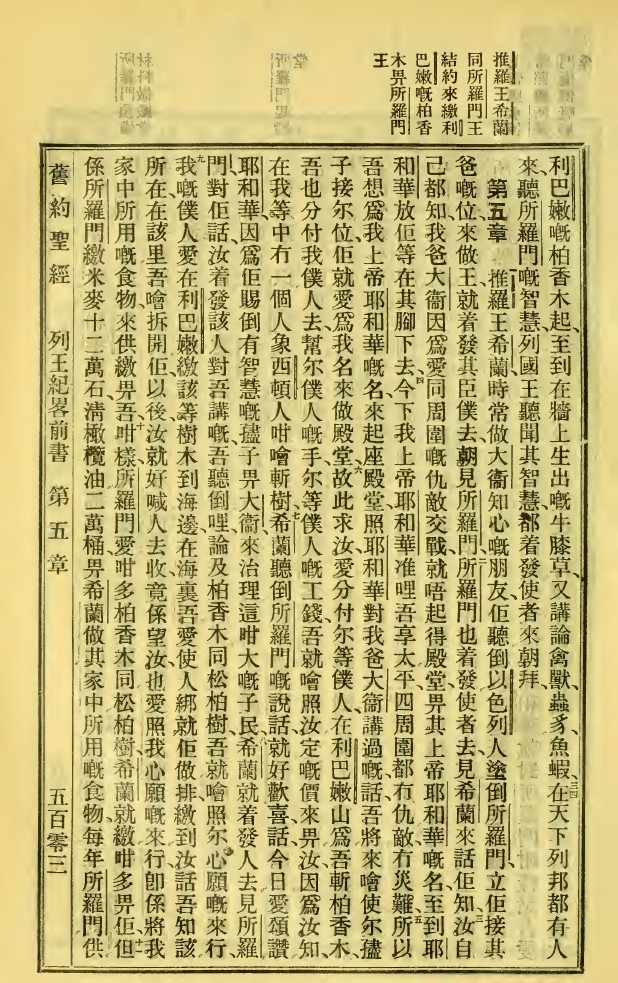 推羅王希蘭
同所羅門王
結約來繳利
巴嫩嘅柏香
木畀所羅門
王
利巴嫩嘅柏香木起、至到在牆上生出嘅牛膝草、又講論禽獸蟲豸魚蝦、三四在天下列邦都有人
來聽所羅門嘅智慧、列國王聽聞其智慧、都着發使者來朝拜、
第五章 一推羅王希蘭時常做大衞知心嘅朋友、佢聽倒以色列人塗倒所羅門、立佢接其
爸嘅位來做王、就着發其臣僕去朝見所羅門、二所羅門也着發使者去見希蘭來話佢知、三汝自
己都知我爸大衞因爲愛同周圍嘅仇敵交戰、就唔起得殿堂畀其上帝耶和華嘅名、至到耶
和華放佢等在其腳下去、四今下我上帝耶和華准哩吾享太平、四周圍都冇仇敵冇災難、五所以
吾想爲我上帝耶和華嘅名來起座殿堂、照耶和華對我爸大衞講過嘅話、吾將來噲使尔孻
子接尔位、佢就愛爲我名來做殿堂、六故此求汝愛分付尔等僕人、在利巴嫩山爲吾斬柏香木、
吾也分付我僕人去幫尔僕人嘅手、尔等僕人嘅工錢、吾就噲照汝定嘅價來畀汝、因爲汝知
在我等中冇一個人象西頓人咁噲斬樹、七希蘭聽倒所羅門嘅說話、就好歡喜話、今日愛頌讚
耶和華、因爲佢賜倒有智慧嘅孻子畀大衞、來治理這咁大嘅子民、八希蘭就着發人去見所羅
門、對佢話、汝着發該人對吾講嘅、吾聽倒哩、論及柏香木同松柏樹、吾就噲照尔心願嘅來行、
九我嘅僕人愛在利巴嫩繳該等樹木到海邊、在海裏吾愛使人綁就佢做排、繳到汝話吾知該
所在、在該里吾噲拆開佢、以後汝就好喊人去收、竟係望汝也愛照我心願嘅來行、卽係將我
家中所用嘅食物、來供繳畀吾、十咁樣所羅門愛咁多柏香木同松柏樹、希蘭就繳咁多畀佢、十一但
係所羅門繳米麥十二萬石、清橄欖油二萬桶、畀希蘭做其家中所用嘅食物、每年所羅門供
舊約聖經 列王紀畧前書 第五章 五百零三